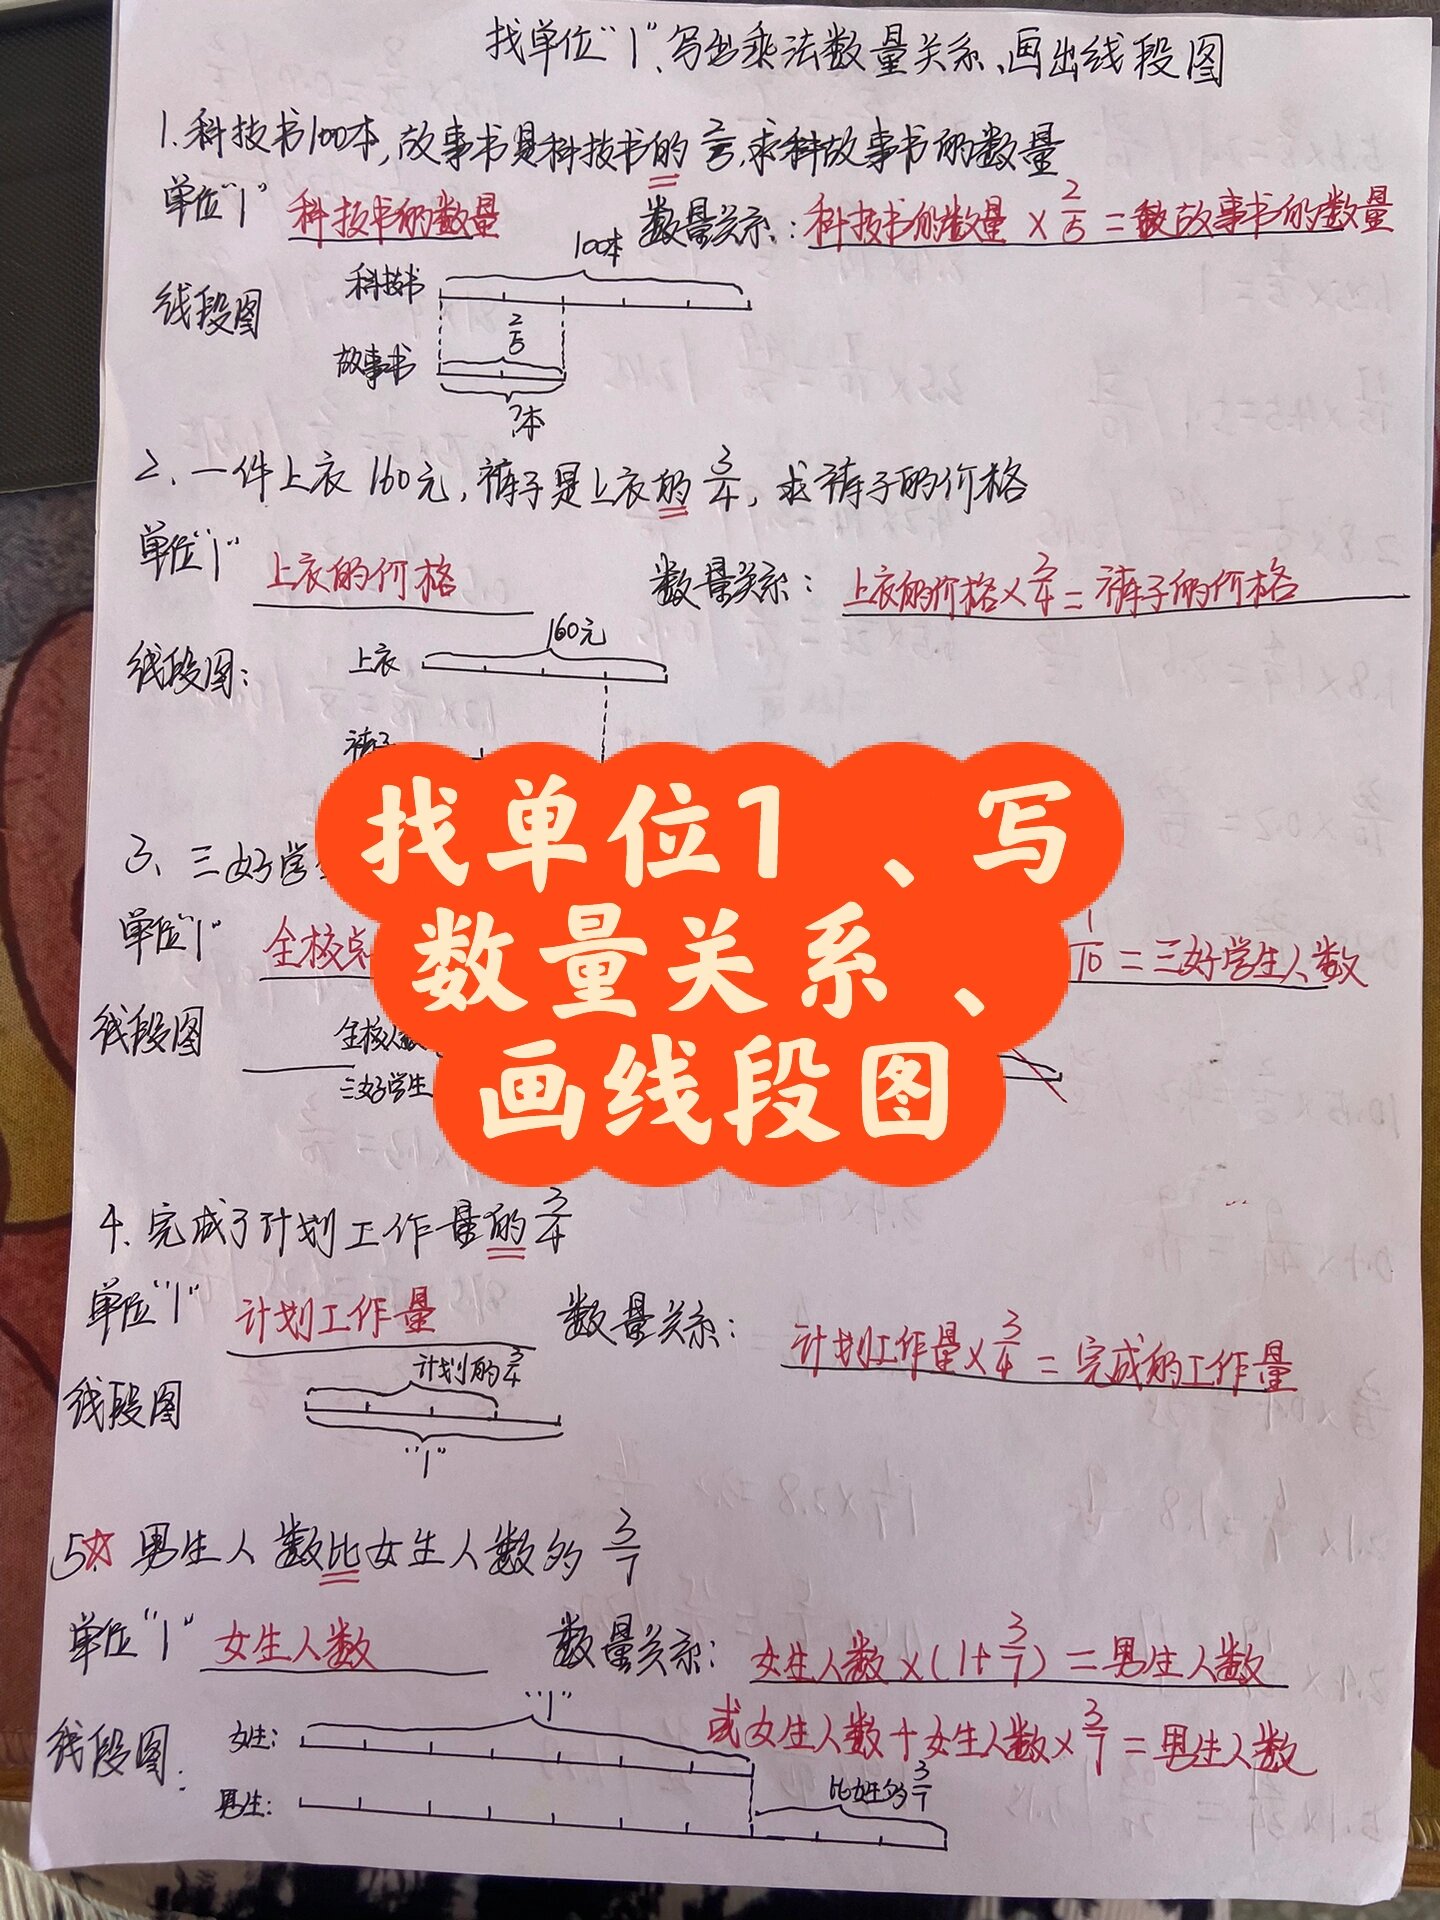 找单位“1”、写出乘法数量关系、画出线段图
1.科技书100本,故事书是科技书的2/5,求科故事书的数量
单位“1” 科技书的数量 数量关系:科技书的数量×2/5=故事书的数量
线段图
100本
科技书
2/5
故事书
?本
2、一件上衣160元,裤子是上衣的3/4,求裤子的价格
单位“1” 上衣的价格 数量关系:上衣的价格×3/4=裤子的价格
线段图:
160元
上衣
裤子
找单位1、写
数量关系、
画线段图
3、三好学
单位“1” 全校 1/10=三好学生人数
线段图
全校人数
三好学生
4、完成了计划工作量的3/4
单位“1” 计划工作量 数量关系:计划工作量×3/4=完成的工作量
线段图
计划的3/4
“1”
5☆男生人数比女生人数多3/7
单位“1” 女生人数 数量关系:女生人数×(1+3/7)=男生人数
或女生人数+女生人数×3/7=男生人数
线段图
“1”
女生:
比女生多3/7
男生: